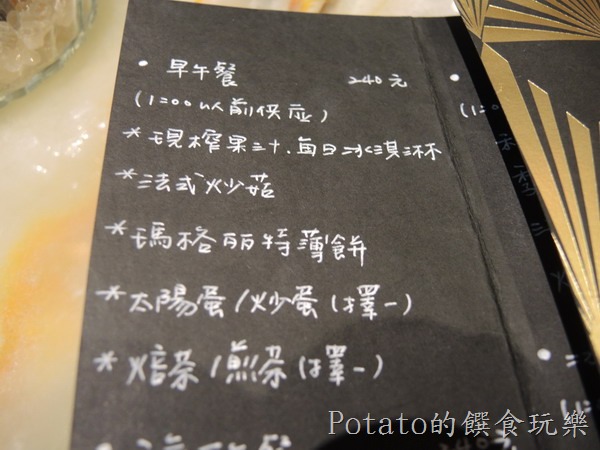 • 早午餐 240元
(1200以前供应)
*現榨果汁.每日冰淇淋
*法式炒菇
*瑪格丽特薄餅
*太陽蛋/炒蛋(擇一)
*焙茶/煎茶(擇一)
Potato的饌食玩樂